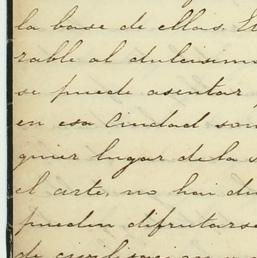 la base de ellas. El
rable al dulcisimo
se puede asentar
en esa Ciudad son
quier lugar de la
el arte, no hai du
pueden difrutarse
de civilisacion